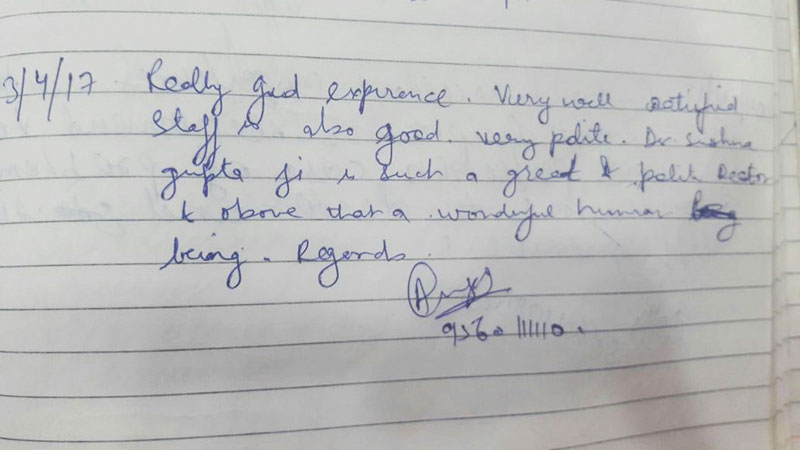 3/4/17. Really good expirence. Very well satisfied
Staff is also good. very polite. Dr. Sushma
gupta ji is such a great & polite Doctor
& above that a wonderful human
being. Regards.